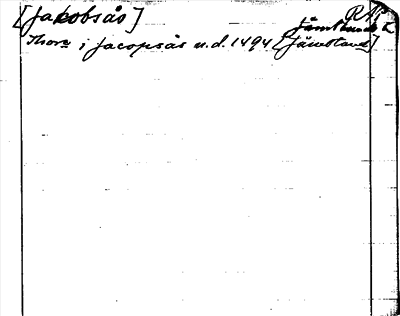 [Jakobsås] RAP
Jämtland
Thore i Jacopsås u.d. 1494 [Jämtland]